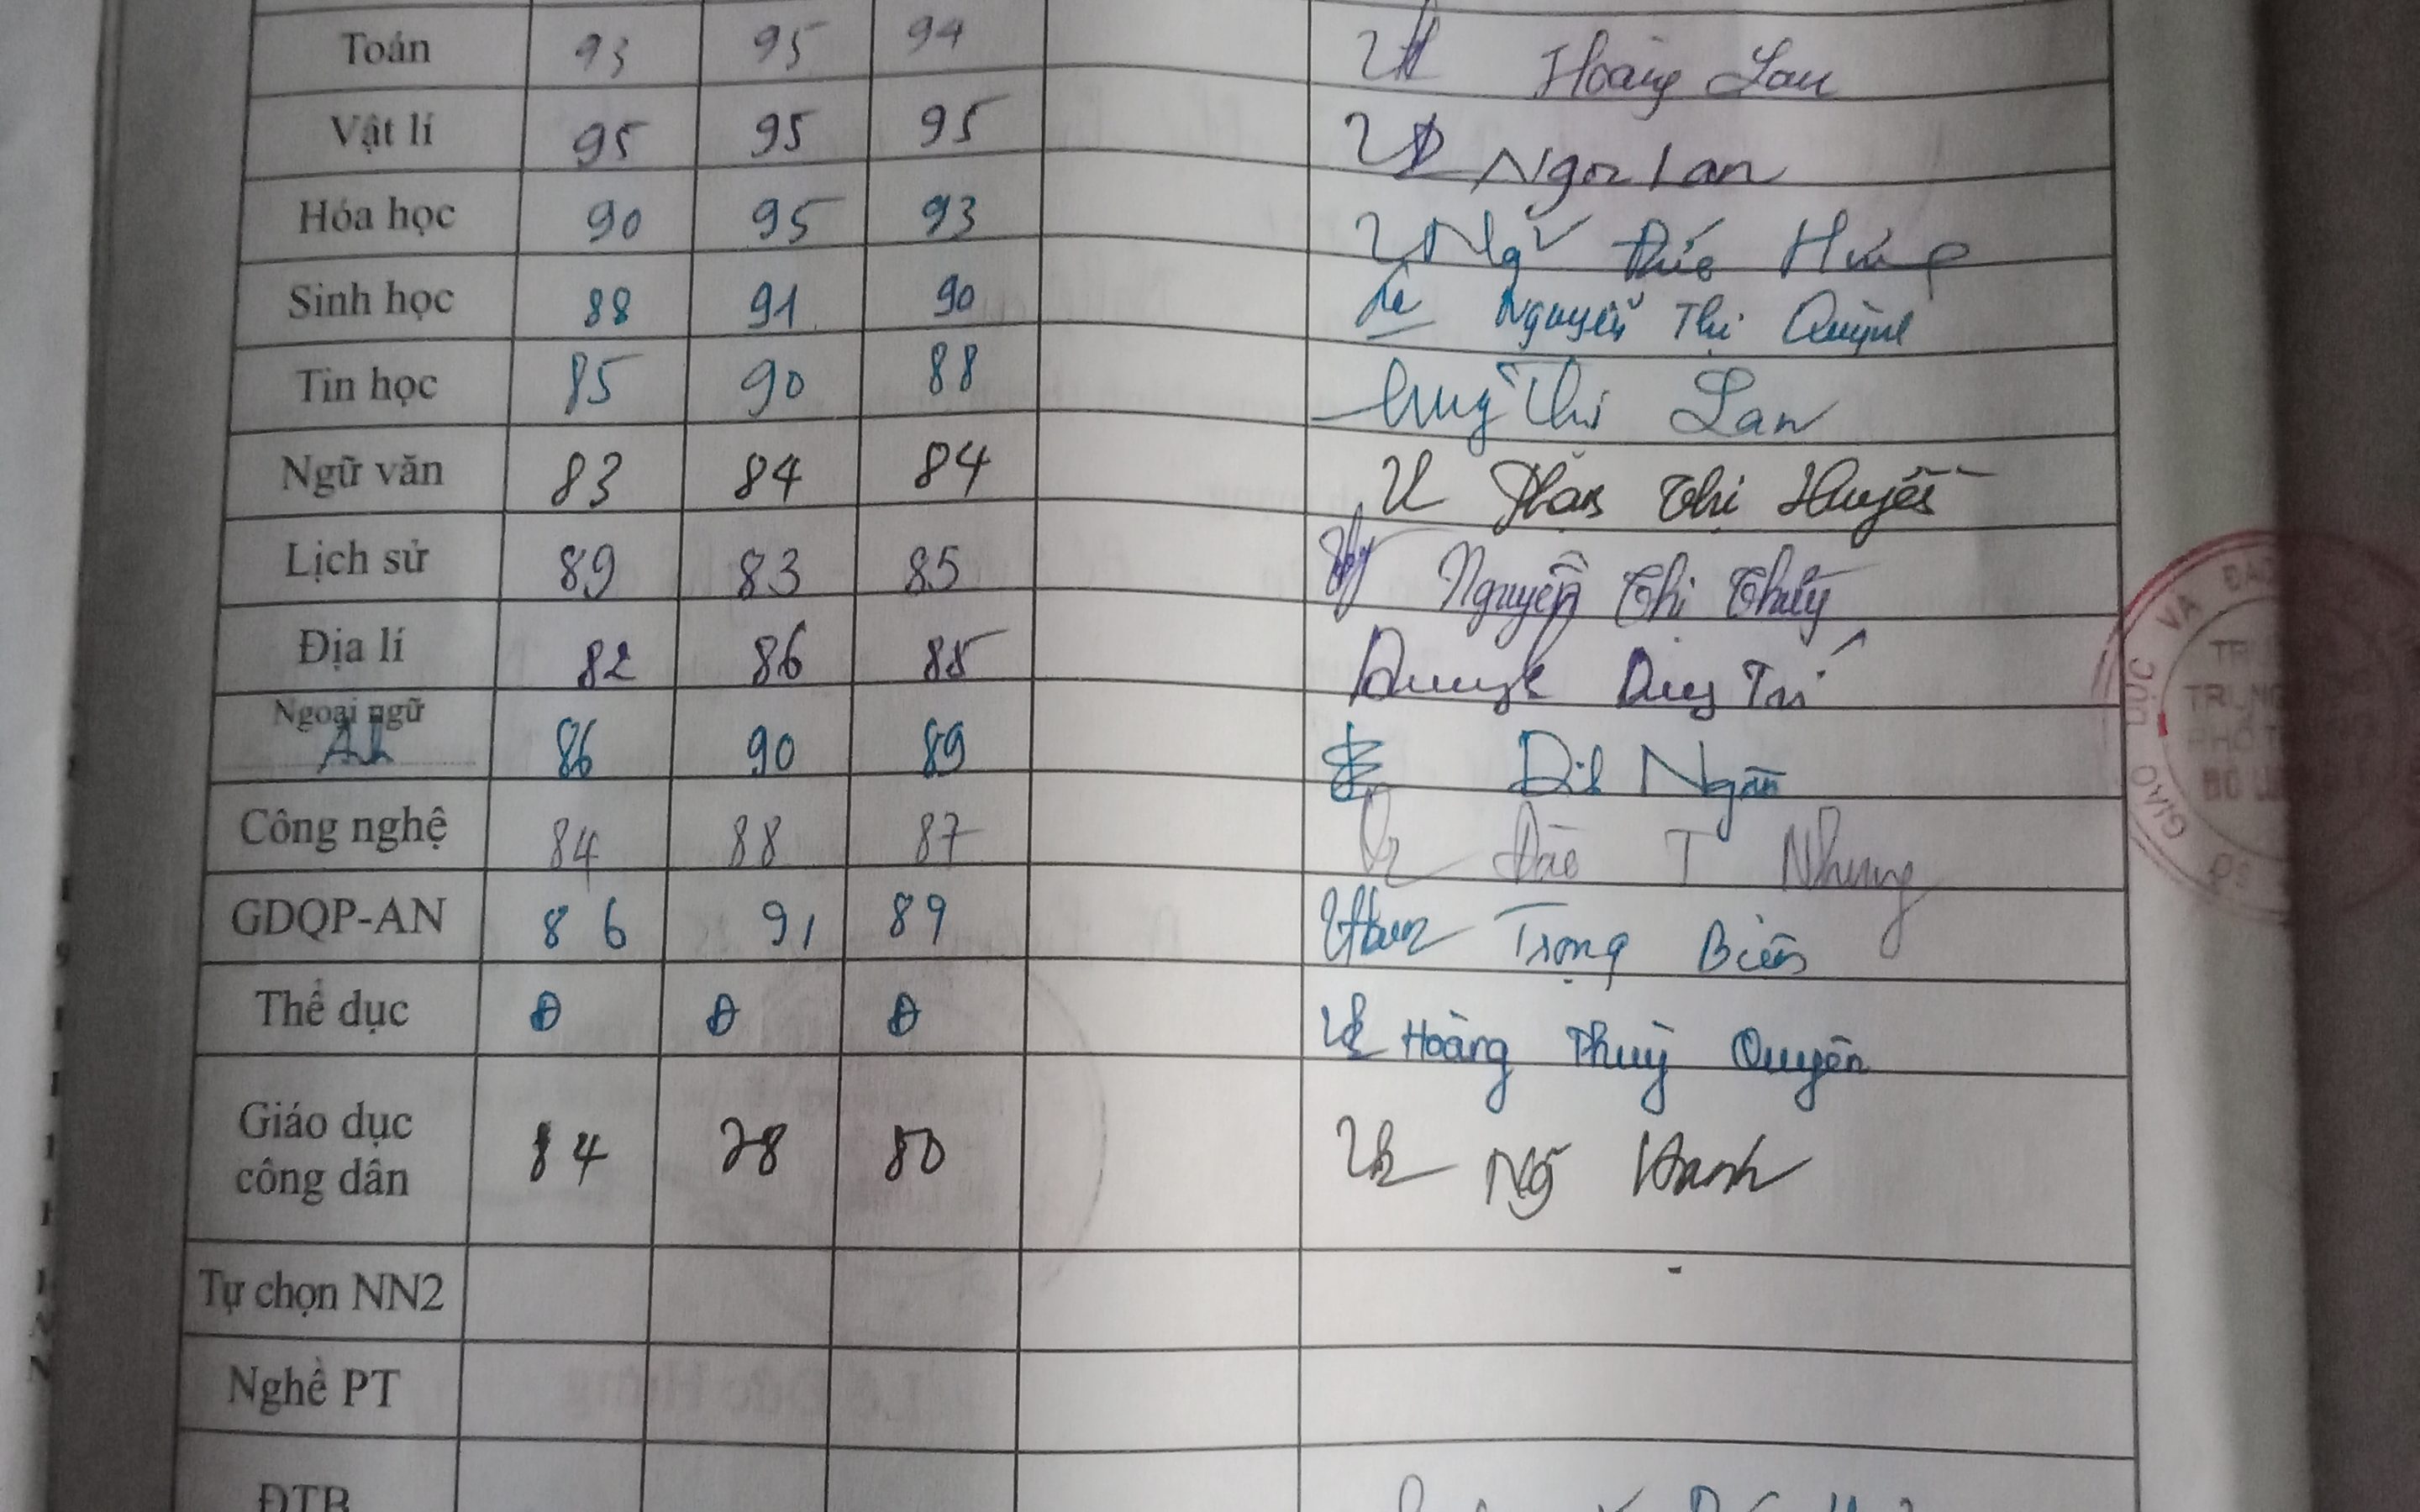 Toán 93 95 94 Hoàng Lan
Vật lí 95 95 95 Ngọc Lan
Hóa học 90 95 93 Đức
Sinh học 88 91 90 Nguyễn Thị Quỳnh
Tin học 85 90 88 Thị Lan
Ngữ văn 83 84 84 Thị Huyền
Lịch sử 89 83 85 Nguyễn Thị Thủy
Địa lí 82 86 85 Duy
Ngoại ngữ
86 90 89 Ngân
Công nghệ 84 88 87 Đào T Nhung
GDQP-AN 86 91 89 Trọng
Thể dục Đ Đ Đ Hoàng Thuỳ Quyên
Giáo dục
công dân 84 78 80
Tự chọn NN2
Nghề PT
ĐTB
GIÁO DỤC VÀ